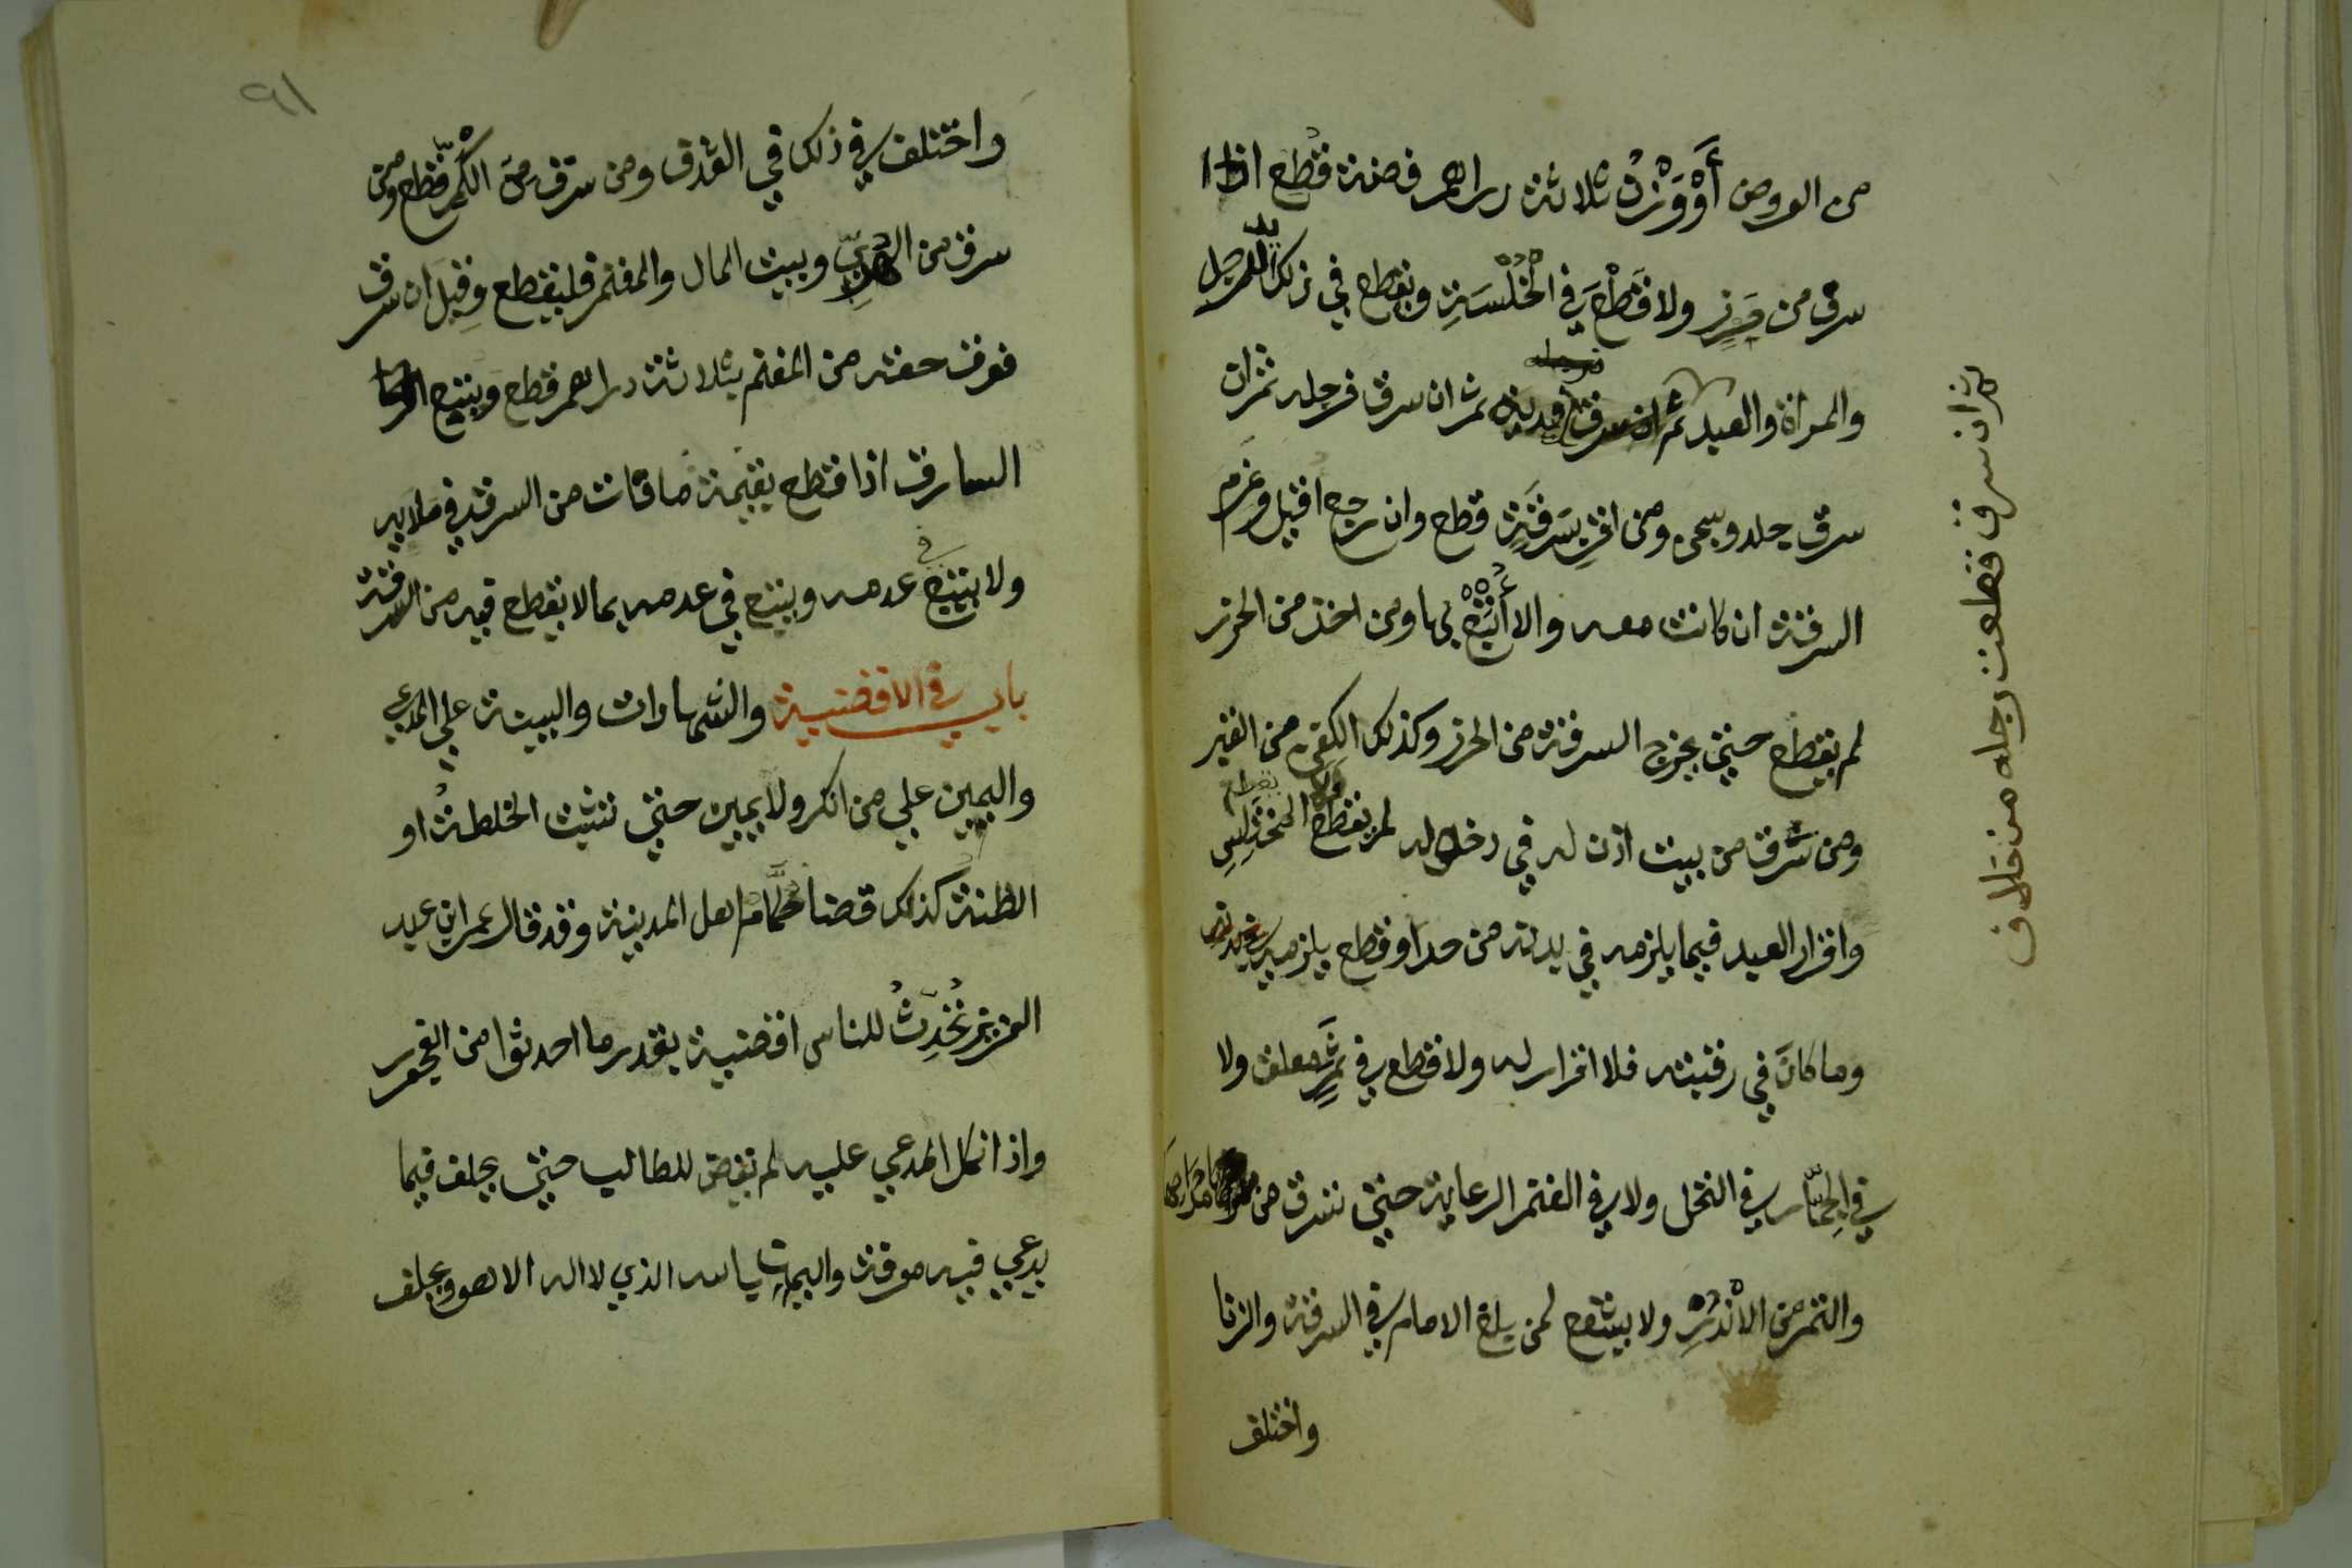 من العروض أَوْ وَزْنُ ثلاثة دراهم فضة قطع اذا
سرق من حرزٍ ولا قَطْعَ في الْخُلْسَةِ ويقطع في ذلك يد الرجل
والمراة والعبد ثم ان سرق فيده ثم ان سرق فرجله ثم ان
سرق جلد وسجن ومن اقر بِسَرِقَةٍ قطع وان رجع اقيل وغرم
السرقة ان كانت معه والا أُتْبِعْ بها ومن اخذ من الحرز
لم يقطع حتي يخرج السرقة من الحرز وكذلك الكفن من القبر
ومن سَّرق من بيت اذن له في دخوله لم يقطع ولا يقطع المختلِسِ
واقرار العبد فيما يلزمه في بدنه من حد او قطع يلزمه
وما كانَ في رقبته فلا اقرار له ولا قطع في ثمرٍ معلق ولا
في الجِمَّار في النخل ولا في الغنم الراعاية حتي تسرق من مراحها
والتمر من الاَنْدَرِ ولا يشفع لمن بلغ الامام في السرقة والزنا
واختلف
ثم ان سرق قطعت رجله من خلاف
٩١
واختلف في ذلك في القذف ومن سرق مِنَ الْكُمِّ قطع ومن
سرق من الهري وبيت المال والمغنم فليقطع وقِيلَ ان سرق
فوق حقه من المغنم بثلاثة دراهم قطع ويتبع
السارق اذا قطع بقيمة ما فات من السرقة في ملايه
ولا يتبع في عدمه ويتبع في عدمه بما لا يقطع فيه من السرقة
باب في الاقضية والشهادات والبينة علي المدعي
واليمين علي من انكر ولا يمين حتي تثبت الخلطةُ او
الظنة كذلك قضا حُكَّام اهل المدينة وقد قال عمر ابن عبد
العزيز تُحْدِثُ للناس اقضية بقدر ما احدثوا من الفجور
واذا نكل المدعي عليه لم يقض للطالب حتي يحلف فيما
يدعي فيه معرفة واليمين بالله الذي لا اله الا هو ويحلف